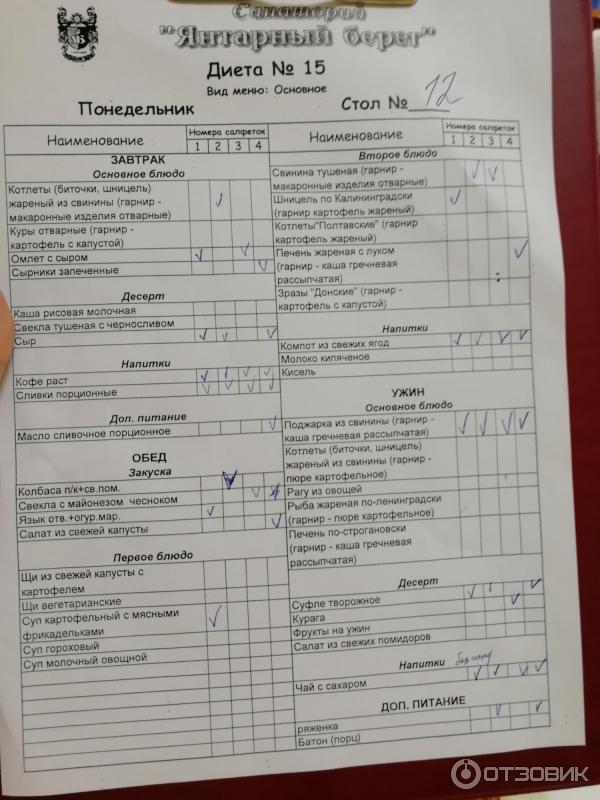 Санаторий
"Янтарный берег"
Диета № 15
Вид меню: Основное
Понедельник
Стол № 12
Наименование
Номера салфеток
1 2 3 4
ЗАВТРАК
Основное блюдо
Котлеты (биточки, шницель)
жареный из свинины (гарнир -
макаронные изделия отварные)
Куры отварные (гарнир -
картофель с капустой)
Омлет с сыром
Сырники запеченные
Десерт
Каша рисовая молочная
Свекла тушеная с черносливом
Сыр
Напитки
Кофе раст
Сливки порционные
Доп. питание
Масло сливочное порционное
ОБЕД
Закуска
Колбаса п/к+св.пом.
Свекла с майонезом чесноком
Язык отв.+огур.мар.
Салат из свежей капусты
Первое блюдо
Щи из свежей капусты с
картофелем
Щи вегетарианские
Суп картофельный с мясными
фрикадельками
Суп гороховый
Суп молочный овощной
Наименование
Номера салфеток
1 2 3 4
Второе блюдо
Свинина тушеная (гарнир -
макаронные изделия отварные)
Шницель по Калининградски
(гарнир картофель жареный)
Котлеты"Полтавские" (гарнир
картофель жареный)
Печень жареная с луком
(гарнир - каша гречневая
рассыпчатая)
Зразы "Донские" (гарнир -
картофель с капустой)
Напитки
Компот из свежих ягод
Молоко кипяченое
Кисель
УЖИН
Основное блюдо
Поджарка из свинины (гарнир -
каша гречневая рассыпчатая)
Котлеты (биточки, шницель)
жареный из свинины (гарнир -
пюре картофельное)
Рагу из овощей
Рыба жареная по-ленинградски
(гарнир - пюре картофельное)
Печень по-строгановски
(гарнир - каша гречневая
рассыпчатая)
Десерт
Суфле творожное
Курага
Фрукты на ужин
Салат из свежих помидоров
Напитки
Чай с сахаром
ДОП. ПИТАНИЕ
ряженка
Батон (порц)
ОТЗОВИК